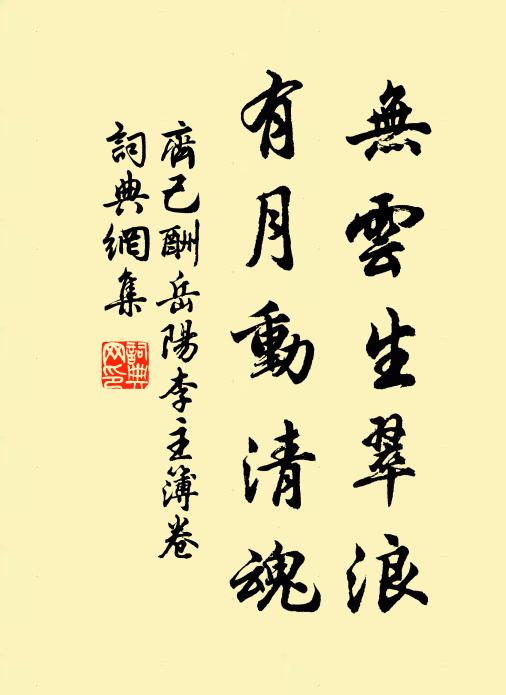 無雲生翠浪
有月動清魂
齊己酬岳陽李主簿卷
詞典網集
詞典網印